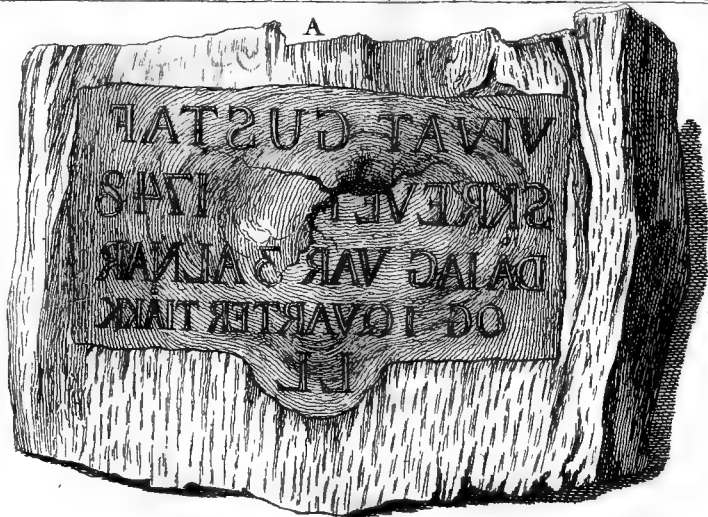 A
VIVAT GUSTAF
1748
DÅ IAG VAR ALNAR
OG 1 QVARTER TIÄKK
LL